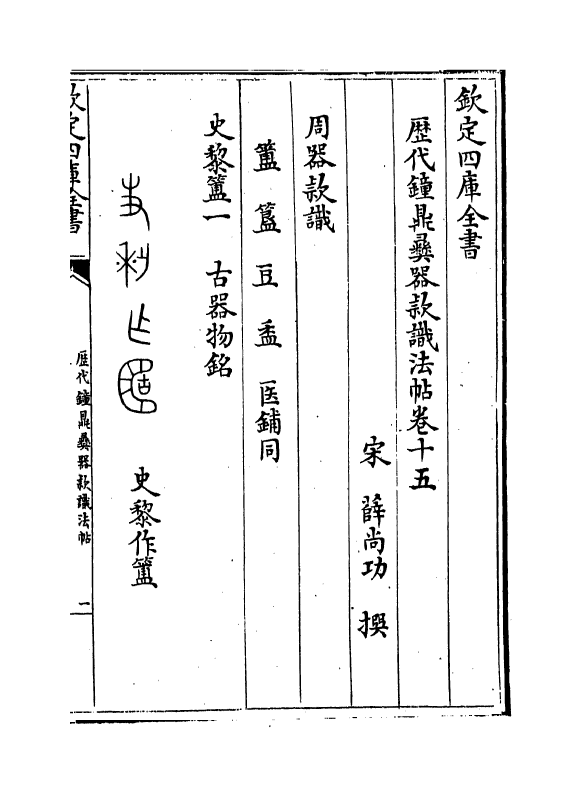 欽定四庫全書
歴代鐘鼎彞器款識法帖卷十五
宋 薛尚功 撰
周器款識
簠 簋 豆 盉 医鋪同
史黎簠一 古器物銘
史黎作簠
欽定四庫全書
歴代鐘鼎彞器款識法帖
一